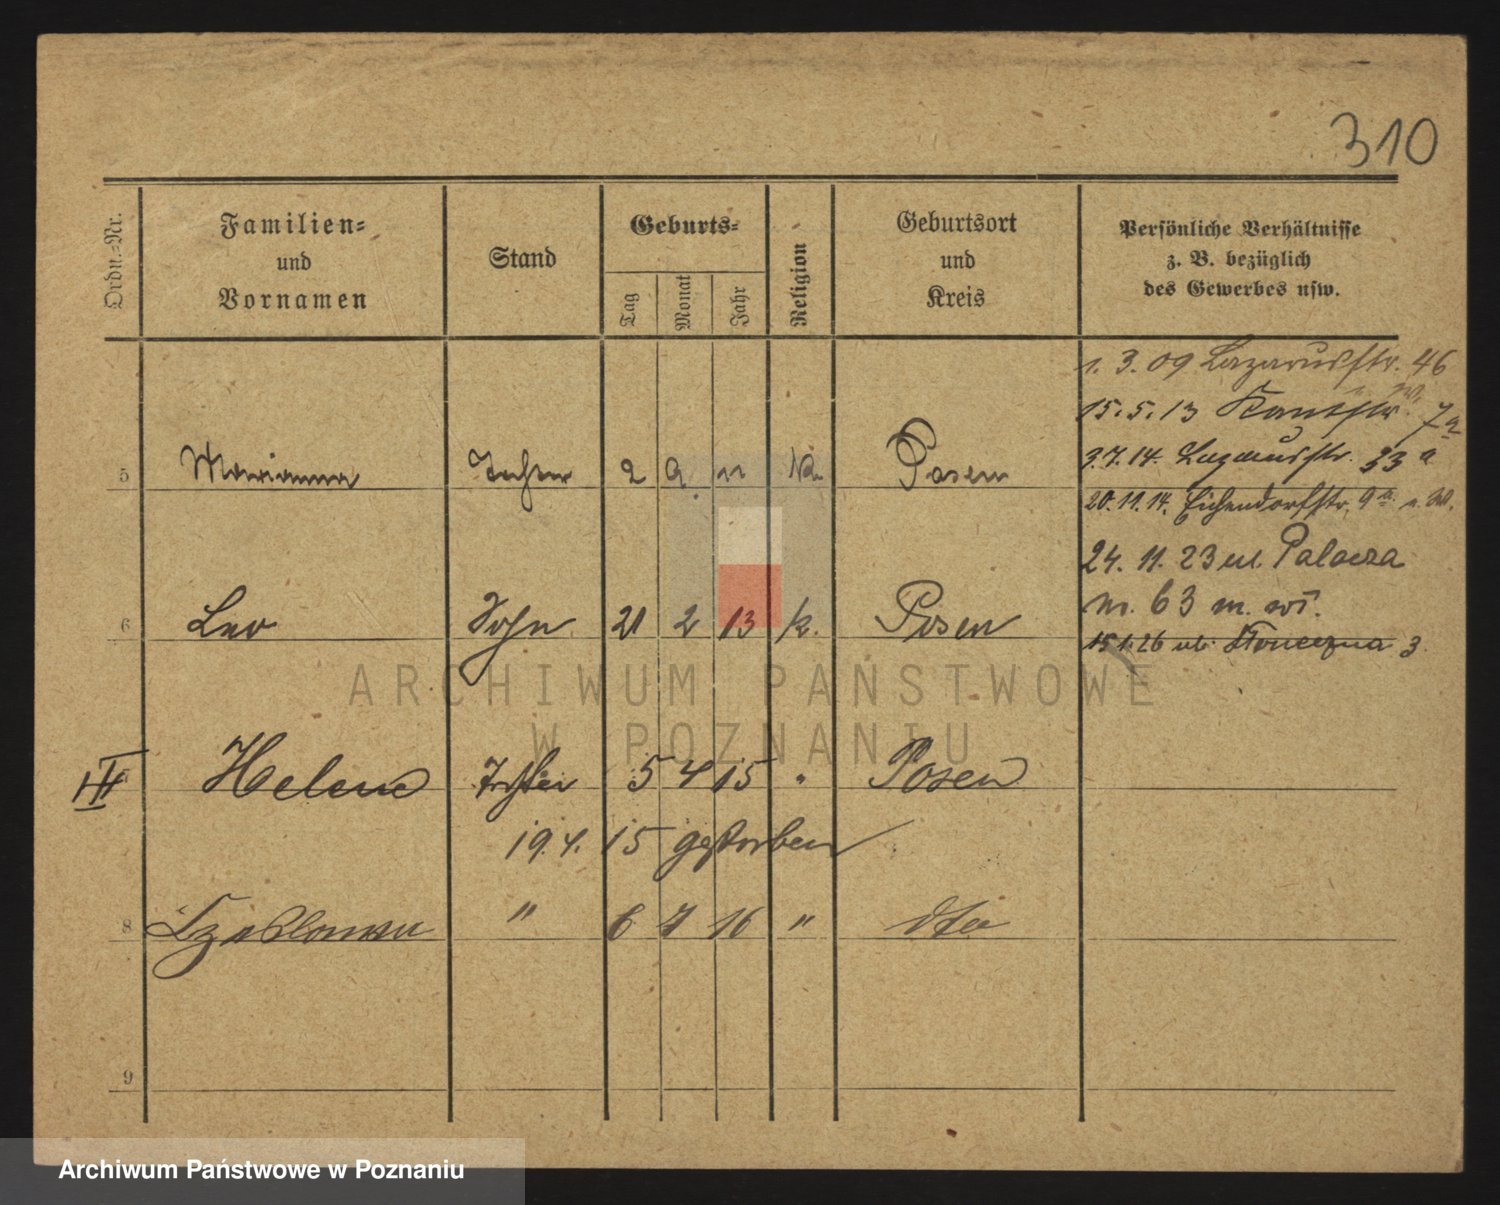 310
Ordn.-Nr.
Familien-
und
Vornamen
Stand
Geburts-
Tag
Monat
Jahr
Religion
Geburtsort
und
Kreis
Persönliche Verhältnisse
z. B. bezüglich
des Gewerbes usw.
1. 3. 09 Lazarusstr. 46
15. 5. 13 Kantstr. 7a
3. 7. 14. Lazarusstr. 33 a
20. 11. 14. Eichendorfstr. 9a
24. 11. 23 ul. Palacza
nr. 63 m. wł.
15.1.26 ul. Słoneczna 3.
5 Marianna Tochter 2 9 11 k. Posen
6 Leo Sohn 21 2 13 k. Posen
III Helene Tochter 5 4 15 " Posen
19. 4. 15 gestorben
8 Czeslawa " 6 7 16 " dto
9
ARCHIWUM PAŃSTWOWE
W POZNANIU
Archiwum Państwowe w Poznaniu